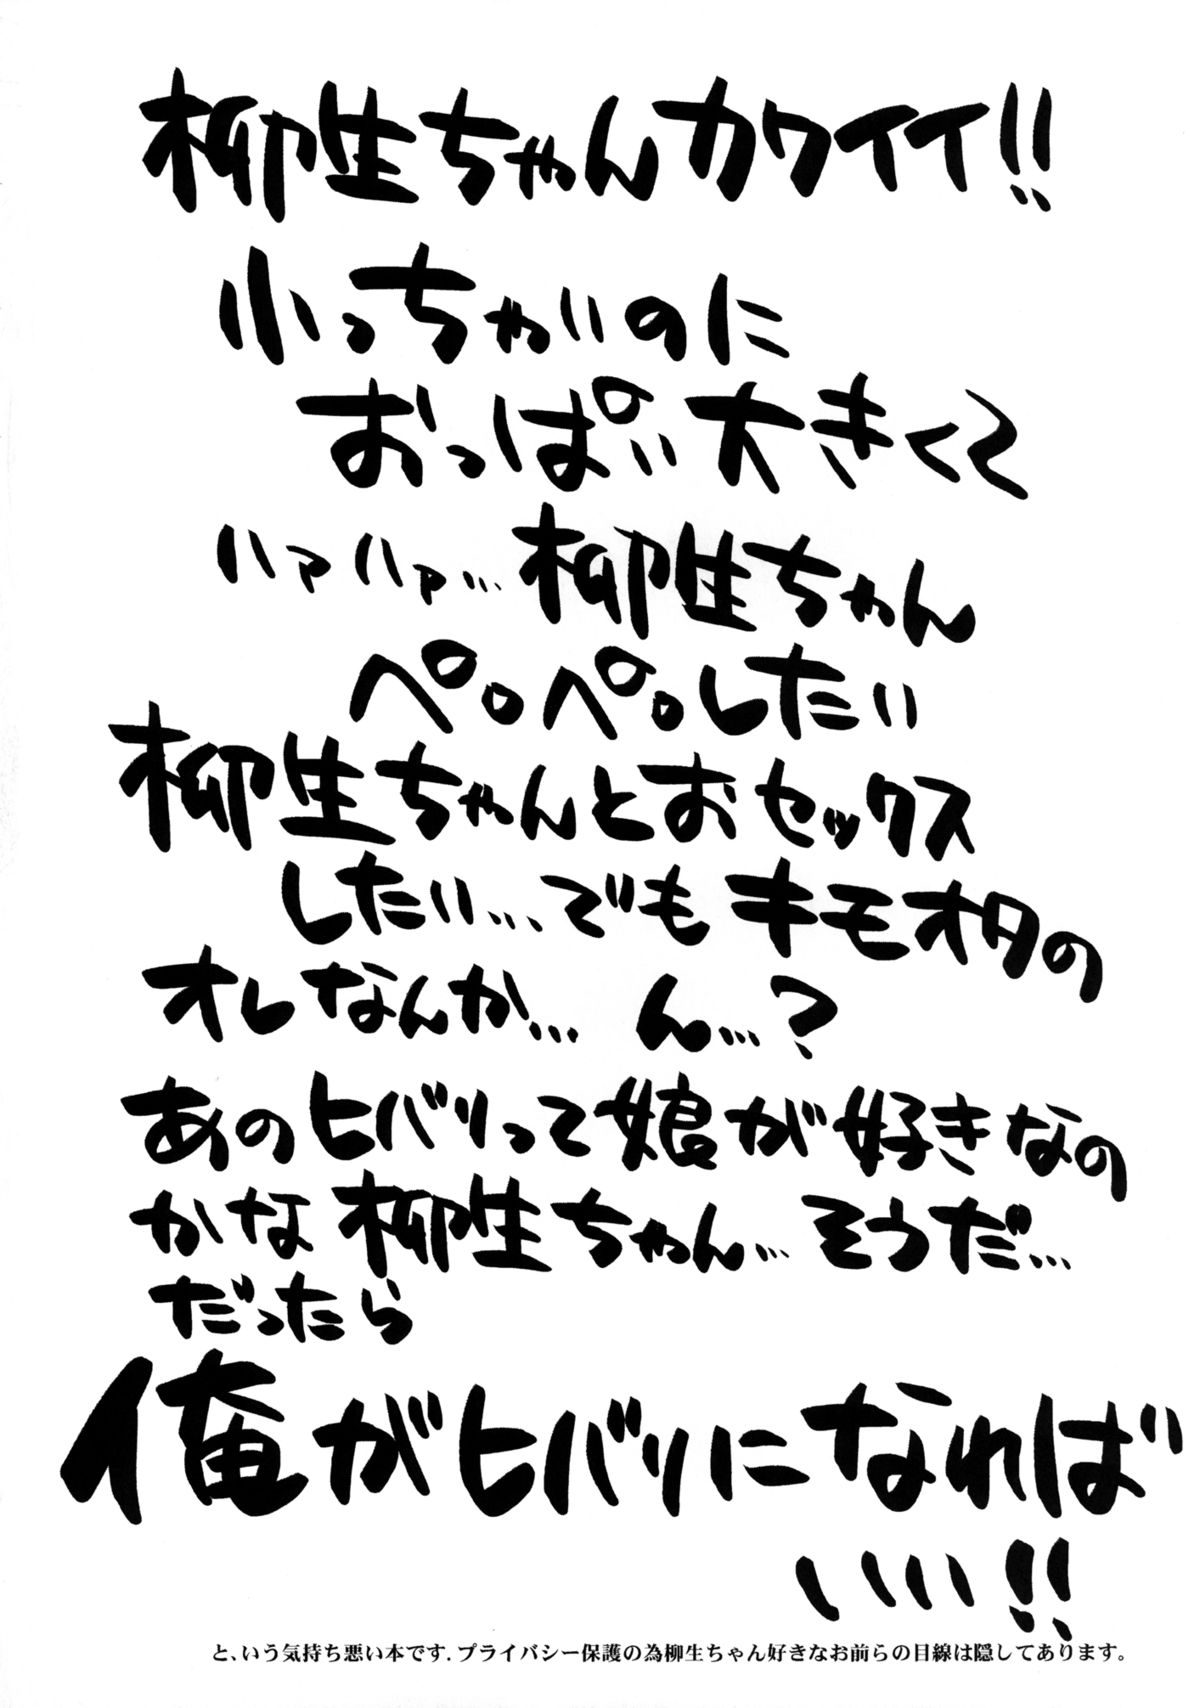 柳生ちゃんカワイイ!!
小っちゃいのに
おっぱい大きくて
ハァハァ…柳生ちゃん
ペロペロしたい
柳生ちゃんとおセックス
したい…でもキモオタの
オレなんか… ん…?
あのヒバリって娘が好きなの
かな柳生ちゃん…そうだ…
だったら
俺がヒバリになれば
いいい!!
と、いう気持ち悪い本です.プライバシー保護の為柳生ちゃん好きなお前らの目線は隠してあります。